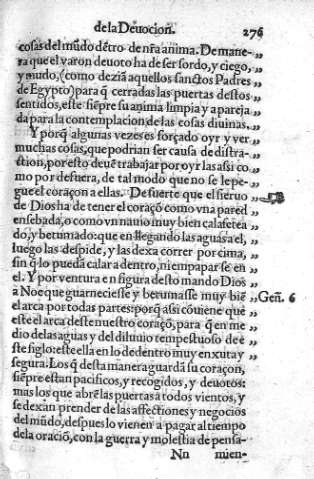 de la Deuocion. 276
cosas del mũdo dẽtro de nr̃a anima. De mane-
ra que el varon deuoto ha de ser sordo, y ciego,
y mudo, (como deziã aquellos sanctos Padres
de Egypto) para q̃ cerradas las puertas destos
sentidos, este siẽpre su anima limpia y apareja
da para la contemplacion de las cosas diuinas.
Y porq̃ algunas vezes es forçado oyr y ver
muchas cosas, que podrian ser causa de distra-
ction, por esto deuẽ trabajar por oyr las assi co
mo por defuera, de tal modo que no se le pe-
gue el coraçon a ellas. De suerte que el sieruo
de Dios ha de tener el coraçõ como vna pared
ensebada, o como vn nauio muy bien calafetea
do, y betumado: que en llegando las aguas a el,
luego las despide, y las dexa correr por cima,
sin q̃ lo pueda calar a dentro, ni empapar se en
el. Y por ventura en figura desto mando Dios
a Noe que guarneciesse y betumasse muy biẽ Geñ. 6
el arca por todas partes: porq̃ assi cõuiene que
este el arca deste nuestro coraçõ, para q̃ en me
dio de las aguas y del diluuio tempestuoso de e
ste siglo: este ella en lo de dentro muy enxuta y
segura. Los q̃ desta manera guardã su coraçon,
siẽpre estan pacificos, y recogidos, y deuotos:
mas los que abrẽ las puertas a todos vientos, y
se dexan prender de las affectiones y negocios
del mũdo, despues lo vienen a pagar al tiempo
de la oraciõ, con la guerra y molestia de pensa-
Nn mien-